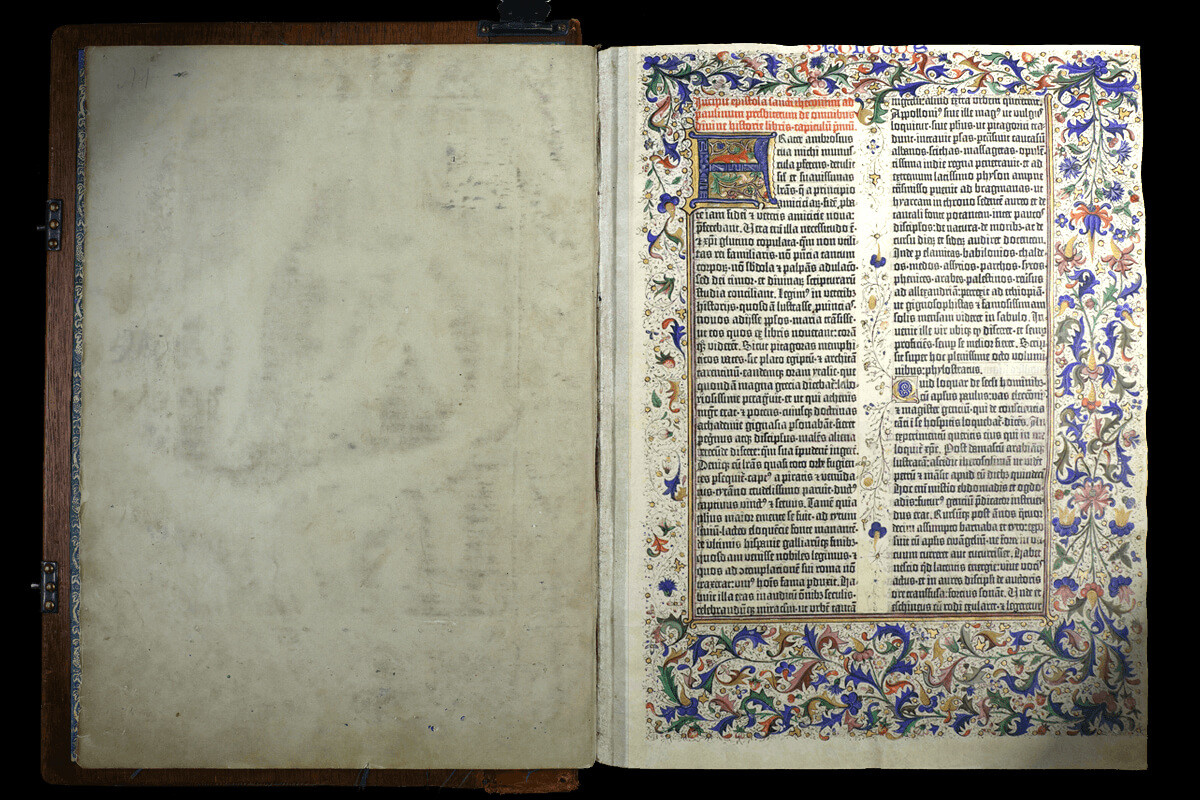 Incipit epistola sancti iheronimi ad
paulinum presbiterum de omnibus
diuine historie libris·capitulũ primũ.
Frater ambrosius
tua michi munus-
cula pferens·detulit
sił et suauissimas
lrãs·q̃ a principio
amiciciaꝝ·fidẽ pba-
te iam fidei ⁊ veteris amicicie noua:
pferebant. Uera em̃ illa necessitudo ẽ·
⁊ xp̃i glutino copulata·qm̃ non vtili-
tas rei familiaris·nõ pñcia tantum
corpoꝝ·nõ sbdola ⁊ palpãs adulacõ·
sed dei timor·et diuinaꝝ scripturarũ
studia conciliant. Legim⁹ in veterib⁹
historijs·quosdã lustrasse puincias·
nouos adijsse pplos·maria trãsisse·
ut eos quos ex libris nouerant: corã
q; viderẽt. Sicut pitagoras memphi-
ticos vates·sic plato egiptũ·⁊ architã
tarentinũ·eandemq; oram ytalie·que
quondã magna grecia dicebat̃: labo-
riosissime peragrauit·et ut qui athenis
mgr̃ erat·⁊ potens·cuiusq; doctrinas
achademie gignasia psonabãt· fieret
peginus atq; discipulus·malẽs aliena
verecũde discere: qm̃ sua ĩpudent̃ ingere.
Deniq; cũ lrãs quasi toto orbe fugien-
tes psequit̃·capt⁹ a piratis ⁊ venũda-
tus·tyrãno crudelissimo paruit·duct⁹
captiuus vinct⁹ ⁊ seruus. Tamẽ quia
phus maior emente se fuit·ad tytum
liuiũ·lacteo eloquẽcie fonte manantẽ·
de vltimis hispanie galliarũq; finib⁹·
quosdam venisse nobiles legimus·⁊
quos ad cõtemplacionẽ sui roma nõ
traxerat: vni⁹ hoĩs fama pduxit. Ha-
buit illa etas inauditũ õnib; seculis·
celebrandũq; miraculũ: ut vrbẽ tantã
ingressi: aliud extra vrbem quererent.
Appolloni⁹ siue ille mag⁹ ut vulgus
loquitur·siue phus·ut pitagorici tra-
dunt·intrauit psas·ptrãsiuit caucasũ·
albanos·scithas·massagetas·opulẽ-
tissima indie regna penetrauit·et ad
extremum latissimo physon ampne
trãsmisso puenit ad bragmanas·ut
hyarcam in throno sedentẽ aureo et de
tantali fonte potantem·inter paucos
discipulos·de natura·de moribz·ac de
cursu dieꝝ et sideꝝ audiret docentem.
Inde p elamitas·babilonios·chalde-
os·medos·assyrios·parthos·syros·
phenices·arabes·palestinos·reuersus
ad allexandriã: perrexit ad ethiopiã·
ut gignosophistas ⁊ famosissimam
solis mensam videret in sabulo. In-
uenit ille vir vbiq; qd̃ disceret·et semp
proficiẽs·semp se melior fieret. Scrip-
sit super hoc plenissime octo volumi-
nibus: phylostratus.
Quid loquar de secl̃i hominibz·
cũ apl̃us paulus: vas electiõis·
⁊ magister genciũ·qui de consciencia
tanti ĩ se hospitis loquebat̃·dicẽs. An
experimentũ queritis eius qui in me
loquit̃ xp̃c. Post damascũ arabiãq;
lustratã: ascẽdit iherosolimã ut viderẽt
petrũ ⁊ mãsit apud eũ diebz quindeci.
Hoc em̃ misterio ebdomadis et ogdo-
adis: futur⁹ genciũ pdicator instruen-
dus erat. Rursũq; post ãnos q̃tuor-
decim assumpto barnaba et tyto: expo-
suit cũ aplis ewangeliũ·ne forte in va-
cuum curreret aut cucurrisset. Habet
nescio qd̃ latentis energie·viue vocis
actus·et in aures discipli de auctoris
ore transfusa: forcius sonat. Unde et
eschineus cũ rodi exularet·⁊ legeretur